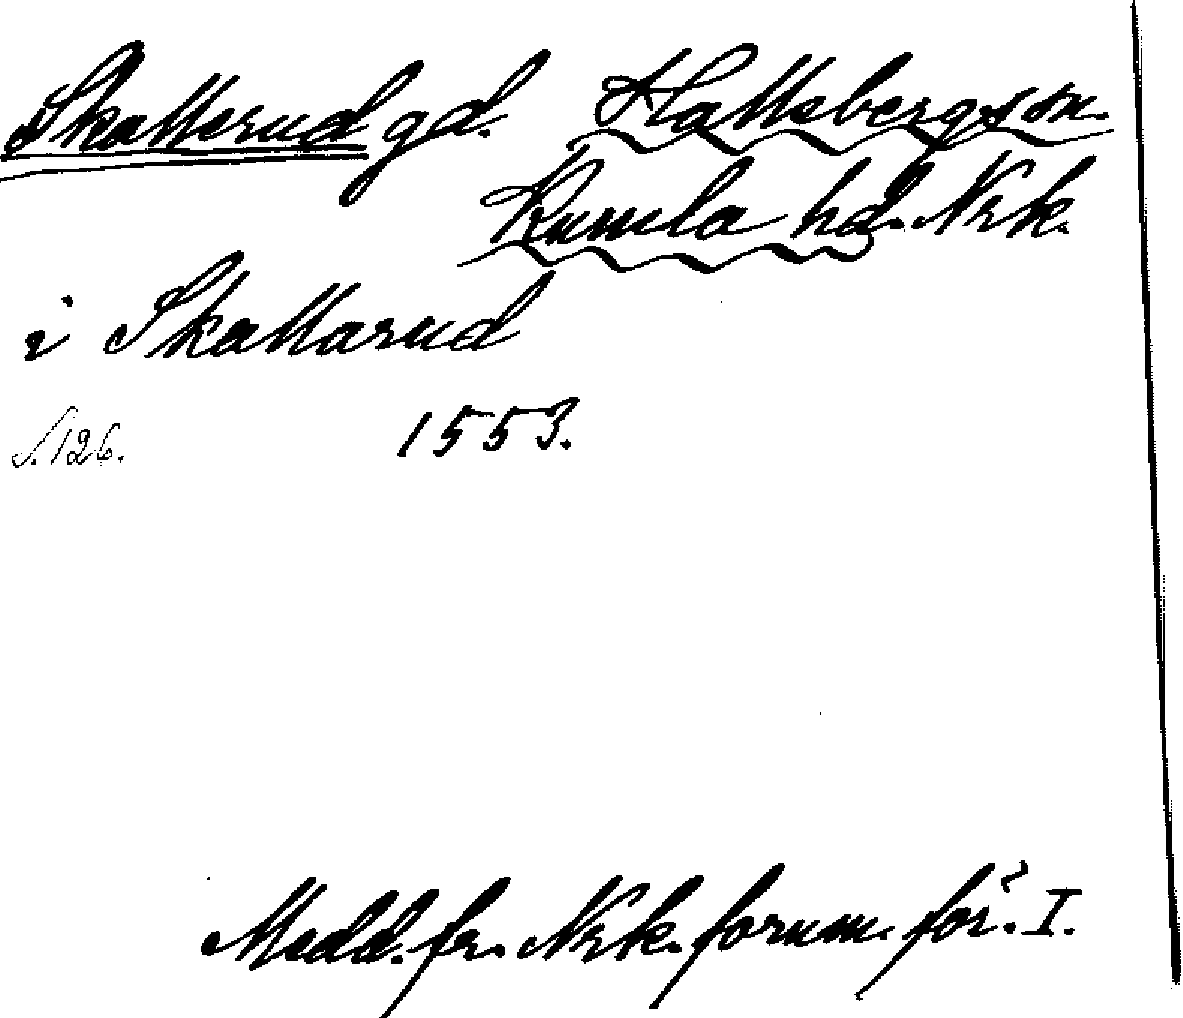 Skatterud gd. Hallsbergs sn.
Kumla hd. Nrk.
i Skattarud
S. 126. 1553.
Medd. fr. Nrk. fornm. för. I.